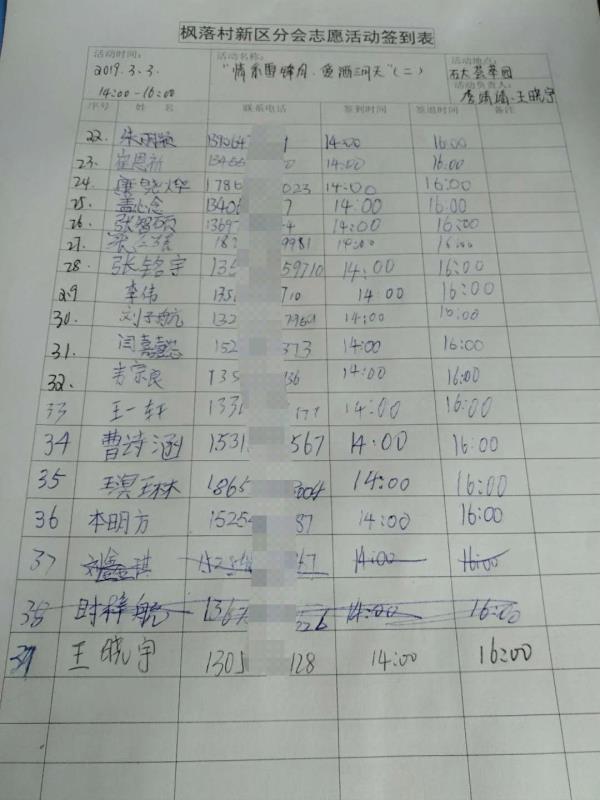 枫落村新区分会志愿活动签到表
活动时间: 2019.3.3. 14:00-16:00 活动名称: "情系雷锋月·爱洒三月天"(二) 石大荟萃园 活动负责人: 李靖靖·王晓宇
序号 姓名 联系电话 签到时间 签退时间 备注
22. 14:00 16:00
23. 崔恩祈 14:00 16:00
24. 178 023 14:00 16:00
25. 孟心念 13406 7 14:00 16:00
26. 张智硕 13697 4 14:00 16:00
27. 18 9981 14:00 16:00
28. 张铭宇 135 59710 14:00 16:00
29 李伟 135 710 14:00 16:00
30. 刘子航 132 14:00 16:00
31. 闫嘉懿 152 373 14:00 16:00
32. 宗良 135 36 14:00 16:00
33 王一轩 133 14:00 16:00
34 曹诗涵 1531 567 14:00 16:00
35 1865 004 14:00 16:00
36 本明方 1525 37 14:00 16:00
37 刘鑫琪 152 67 14:00 16:00
38 时梓航 1367 226 14:00 16:00
39 王晓宇 1305 128 14:00 16:00